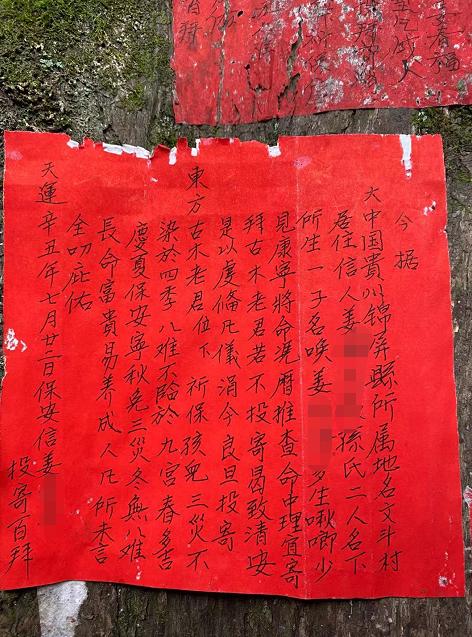 今據
大中国貴州錦屏縣所属地名文斗村
居住信人姜 孫氏二人名下
所生一子名唤姜 多生啾唧少
見康寧將命庚曆推查命中理宜寄
拜古木老君若不投寄曷致清安
是以虔俻凡儀涓今良旦投寄
東方古木老君位下 祈保孩兒三災不
染於四季八难不臨於九宮春多吉
慶夏保安寧秋免三災冬無八难
長命富貴易養成人凡所未言
全叨庇佑
天運辛丑年七月廿二日保安信姜
投寄百拜